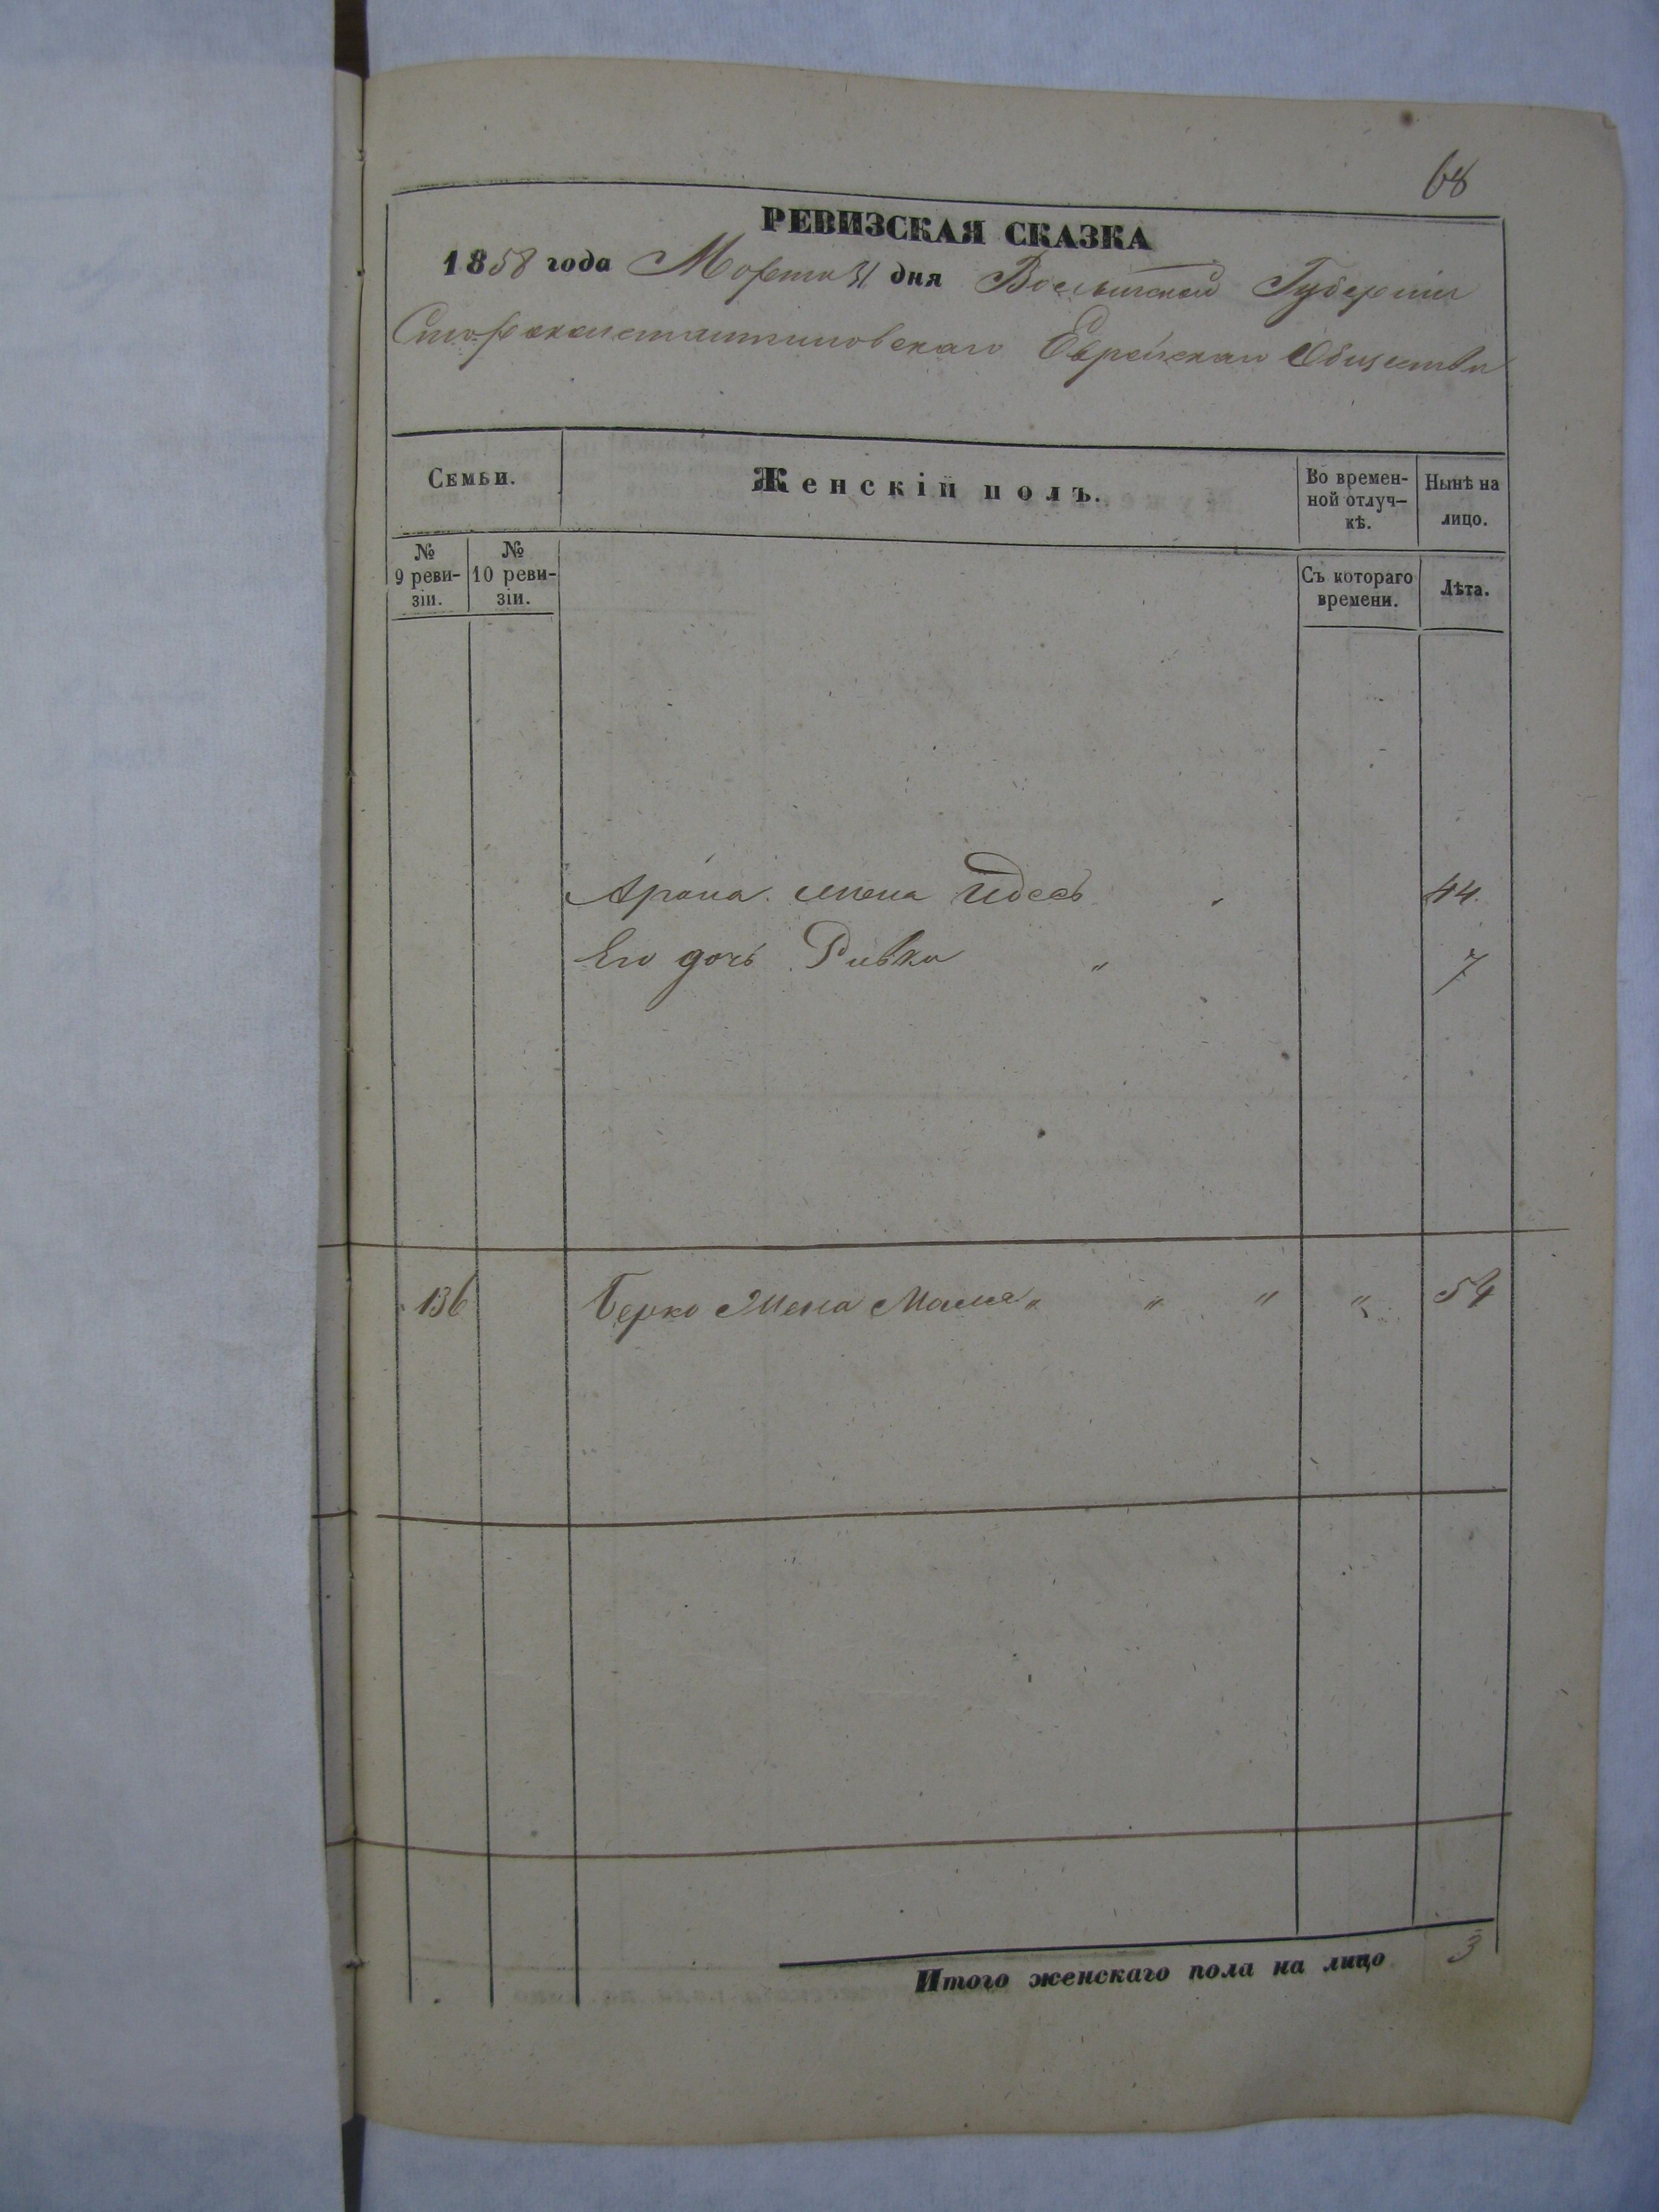 68
РЕВИЗСКАЯ СКАЗКА
1858 года Марта 31 дня Волынской Губерніи
Староконстантиновскаго Еврейскаго Общества
Семьи.
Женскій полъ.
Во времен-
ной отлуч-
кѣ.
Нынѣ на
лицо.
№
9 реви-
зіи.
№
10 реви-
зіи.
Съ котораго
времени.
Лѣта.
Арона жена Идесъ 44
Его дочь Ривка " 7
136 Берко жена " " " " 54
Итого женскаго пола на лицо 3